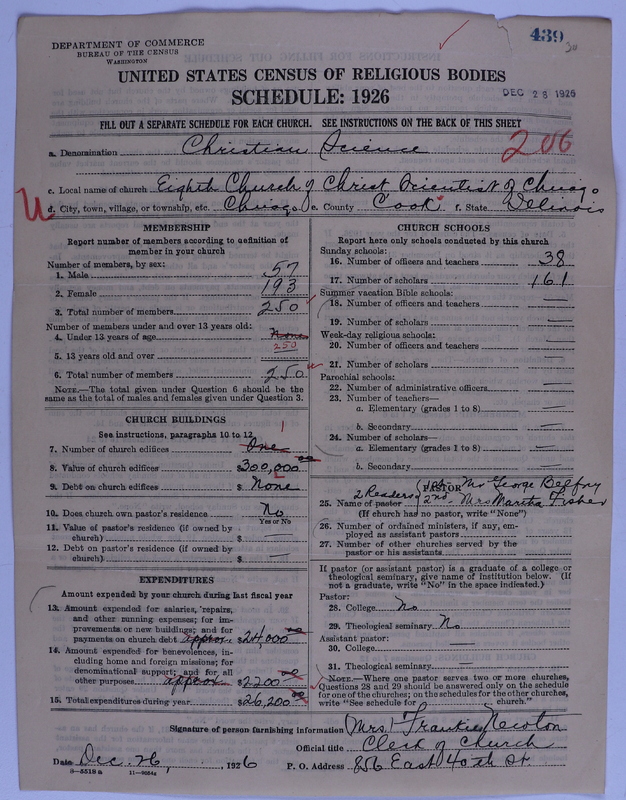 439
DEPARTMENT OF COMMERCE
BUREAU OF THE CENSUS
WASHINGTON
UNITED STATES CENSUS OF RELIGIOUS BODIES
SCHEDULE: 1926
DEC 28 1926
FILL OUT A SEPARATE SCHEDULE FOR EACH CHURCH. SEE INSTRUCTIONS ON THE BACK OF THIS SHEET
a. Denomination Christian Science
206
c. Local name of church Eighth Church of Christ Scientist of Chicago
d. City, town, village, or township, etc. Chicago e. County Cook f. State Illinois
MEMBERSHIP
Report number of members according to definition of
member in your church
Number of members, by sex:
1. Male 57
2. Female 193
3. Total number of members 250
Number of members under and over 13 years old:
4. Under 13 years of age None
250
5. 13 years old and over
6. Total number of members 250
NOTE.—The total given under Question 6 should be the
same as the total of males and females given under Question 3.
CHURCH BUILDINGS
See instructions, paragraphs 10 to 12
1
7. Number of church edifices One
8. Value of church edifices $300,000.00
9. Debt on church edifices $ None
10. Does church own pastor's residence? No
Yes or No
11. Value of pastor's residence (if owned by
church) $ —
12. Debt on pastor's residence (if owned by
church) $ —
EXPENDITURES
Amount expended by your church during last fiscal year
13. Amount expended for salaries, repairs,
and other running expenses; for im-
provements or new buildings; and for
payments on church debt approx $24,000.00
14. Amount expended for benevolences, in-
cluding home and foreign missions; for
denominational support; and for all
other purposes approx $2200.00
15. Total expenditures during year $26,200.00
CHURCH SCHOOLS
Report here only schools conducted by this church
Sunday schools:
16. Number of officers and teachers 38
17. Number of scholars 161
Summer vacation Bible schools:
18. Number of officers and teachers —
19. Number of scholars —
Week-day religious schools:
20. Number of officers and teachers —
21. Number of scholars —
Parochial schools:
22. Number of administrative officers —
23. Number of teachers—
a. Elementary (grades 1 to 8) —
b. Secondary —
24. Number of scholars—
a. Elementary (grades 1 to 8) —
b. Secondary —
PASTOR
1st Mr George Belfry
2 Readers 2nd Mrs Martha Fisher
25. Name of pastor
(If church has no pastor, write "None")
26. Number of ordained ministers, if any, em-
ployed as assistant pastors —
27. Number of other churches served by the
pastor or his assistants —
If pastor (or assistant pastor) is a graduate of a college or
theological seminary, give name of institution below. (If
not a graduate, write "No" in the space indicated.)
Pastor:
28. College No
29. Theological seminary No
Assistant pastor:
30. College —
31. Theological seminary —
NOTE.—Where one pastor serves two or more churches,
Questions 28 and 29 should be answered only on the schedule
for one of the churches; on the schedules for the other churches,
write "See schedule for church."
Signature of person furnishing information (Mrs.) Frankie Newton
Official title Clerk of Church
Date Dec. 26, 1926 P. O. Address 856 East 40th St.
8—5518 a 11—9554a